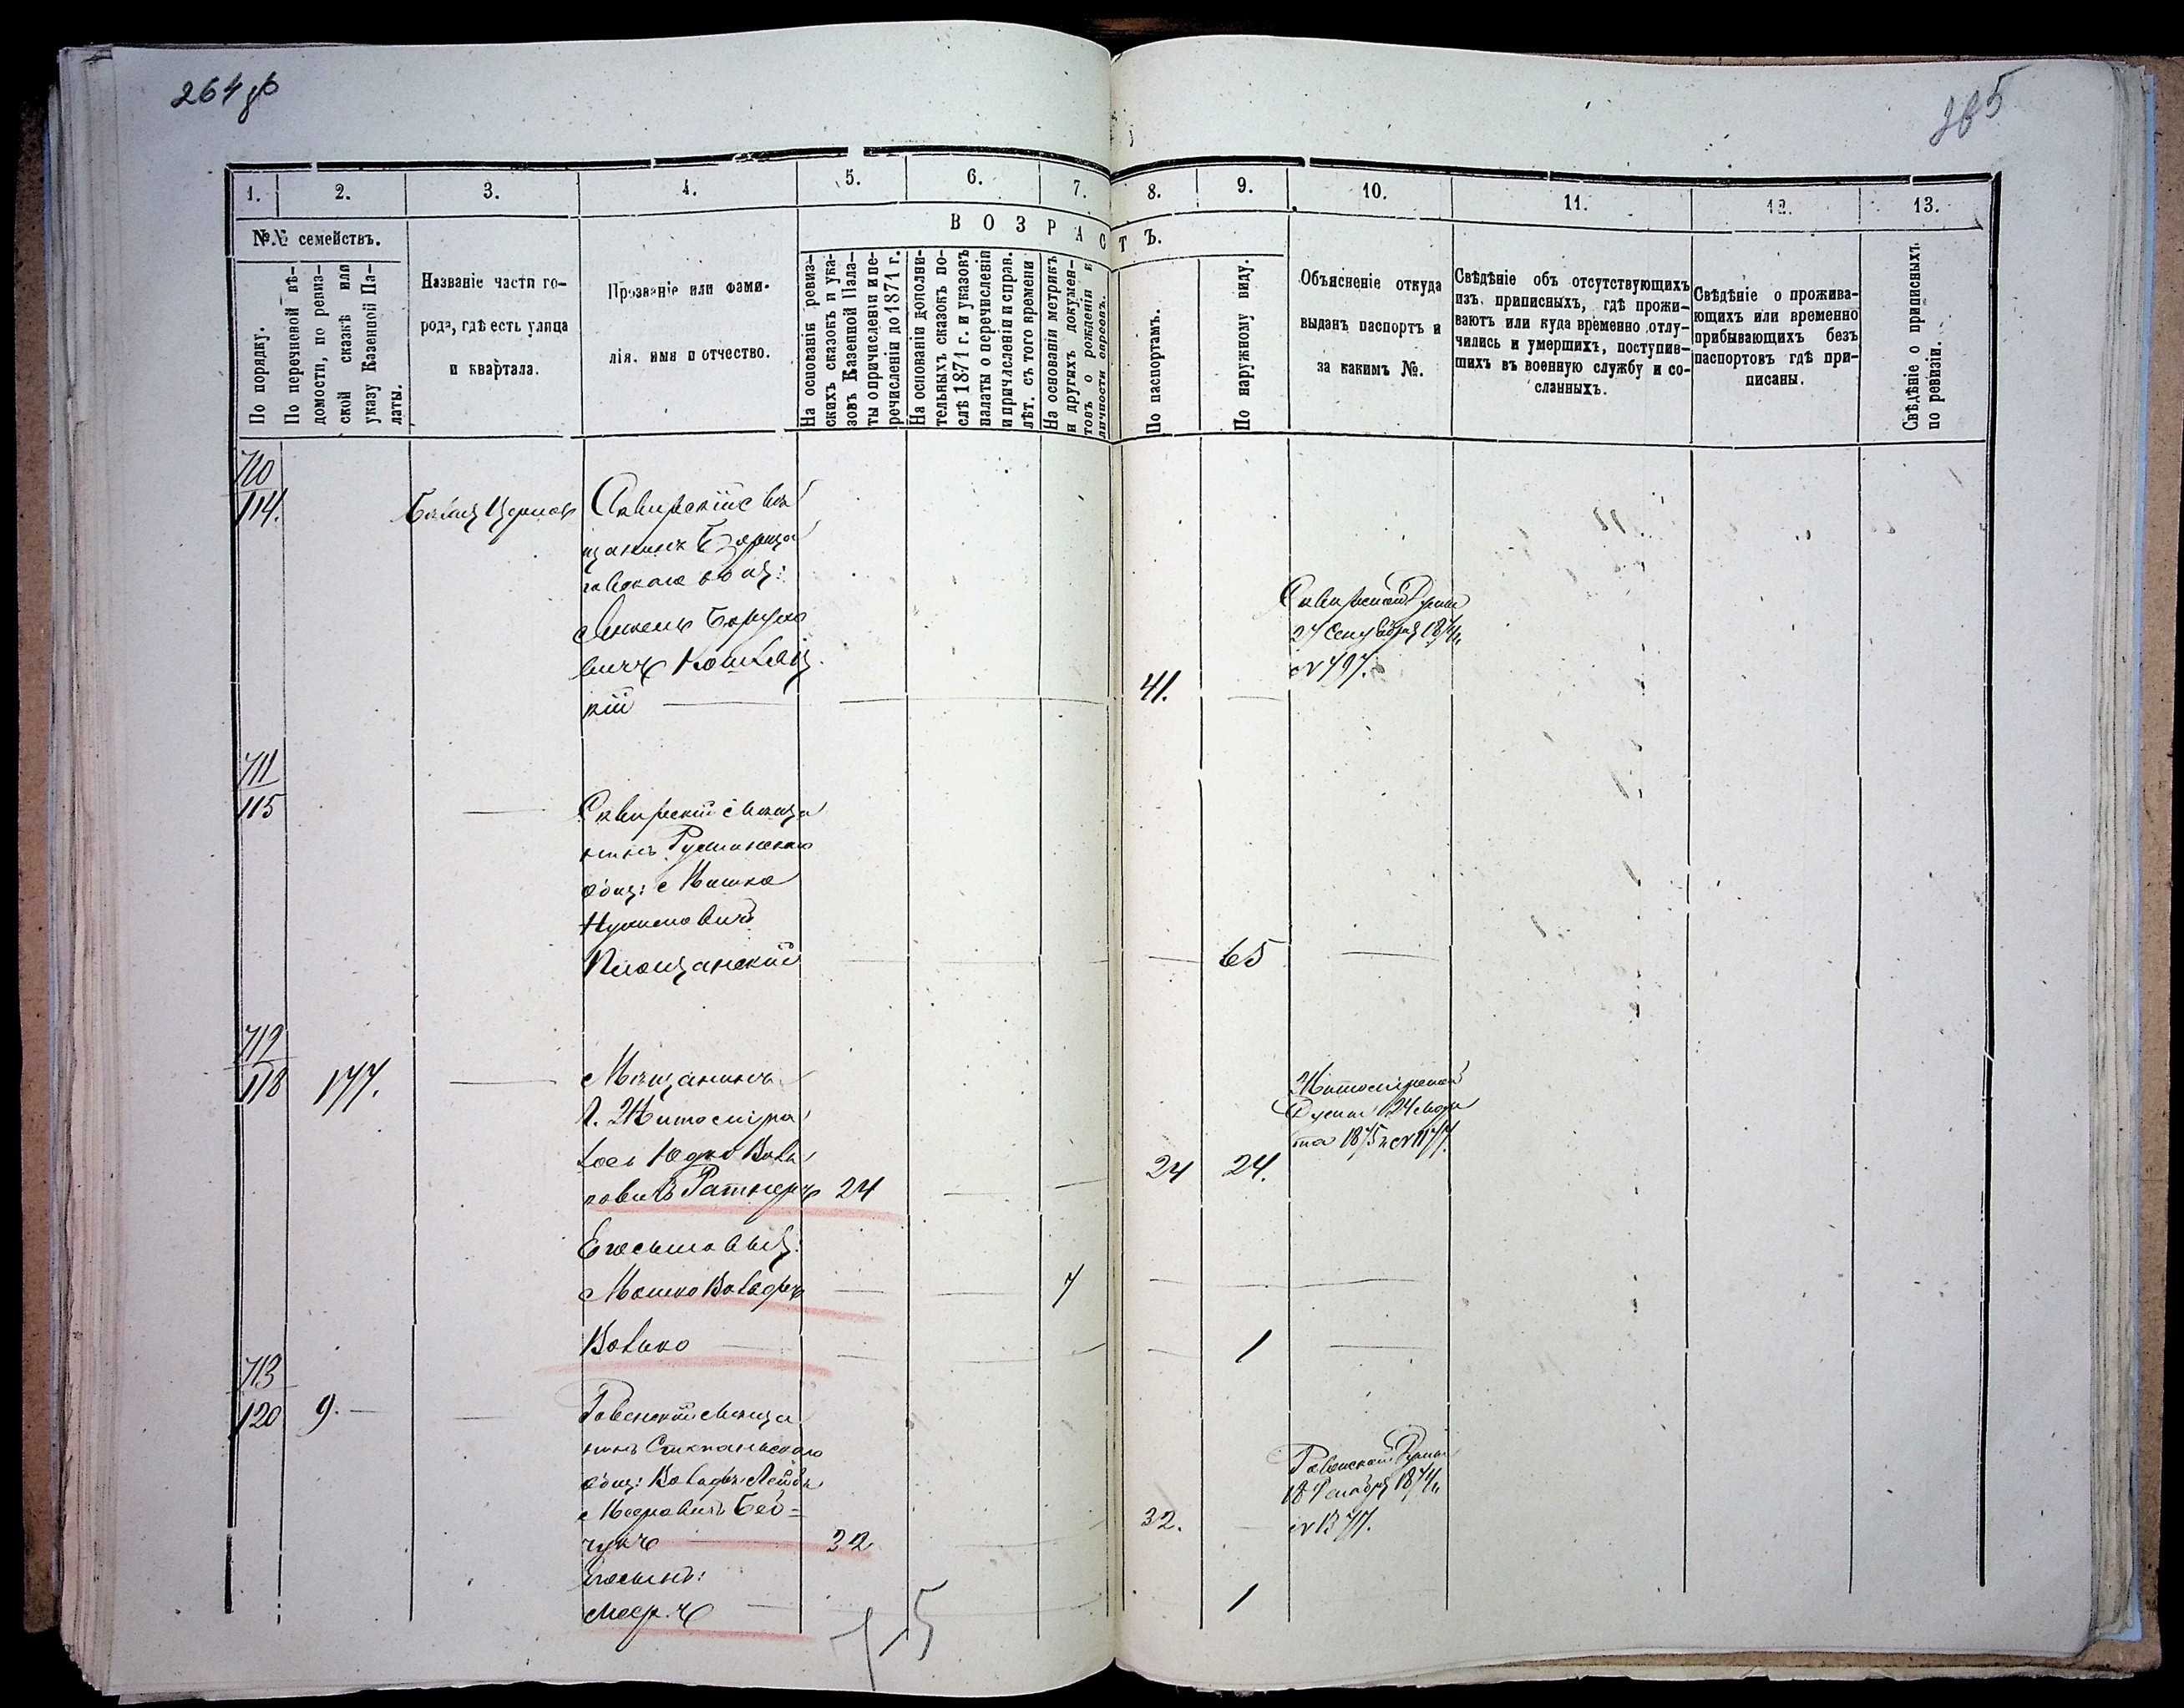 264 об
265
1. 2. 3. 4. 5. 6. 7. 8. 9. 10. 11. 12. 13.
№№ семействъ.
По порядку.
По перечневой вѣ-
домости, по ревиз-
ской сказкѣ или
указу Казенной Па-
латы.
Названіе части го-
рода, гдѣ есть улица
и квартала.
Прозваніе или фами-
лія, имя и отчество.
ВОЗРАСТЪ.
На основаніи ревиз-
скихъ сказокъ и ука-
зовъ Казенной Пала-
ты о причисленіи и пе-
речисленіи до 1871 г.
На основаніи дополни-
тельныхъ сказокъ по-
слѣ 1871 г. и указовъ
палаты о перечисленіи
и причисленіи и справ.
лѣт. съ того времени
На основаніи метрикъ
и другихъ докумен-
товъ о рожденіи и
личности евреевъ.
По паспортамъ.
По наружному виду.
Объясненіе откуда
выданъ паспортъ и
за какимъ №.
Свѣдѣніе объ отсутствующихъ
изъ приписныхъ, гдѣ прожи-
ваютъ или куда временно отлу-
чились и умершихъ, поступив-
шихъ въ военную службу и со-
сланныхъ.
Свѣдѣніе о прожива-
ющихъ или временно
прибывающихъ безъ
паспортовъ гдѣ при-
писаны.
Свѣдѣніе о приписныхъ
по ревизіи.
710
114.
Бѣлая Церковь
Сквирскій мѣ
щанинъ Борща
говскаго общ:
Борухо
вичъ
кій
41.
Сквирской Думы
27 Сентября 1874 г.
№ 797.
711
115
Сквирскій мѣща
нинъ Ружинскаго
общ: Мошко
Нухимовичъ
65
712
118 177.
Мѣщанинъ
г. Житомира
Іось Юдко Воль
ковичъ Ратнеръ 24
24 24.
Житомирской
Думы 24 мар
та 1875 г. № 1177.
Его сыновья:
Мошко Вольфъ
7
Волько
1
713
120 9.
Ровенскій мѣща
нинъ Степаньскаго
общ: Вольфъ Лейба
Мееровичъ Бей-
чукъ 32
32.
Ровенской Думы
18 1874 г.
№ 1377.
Его сынъ:
Мееръ
1
75